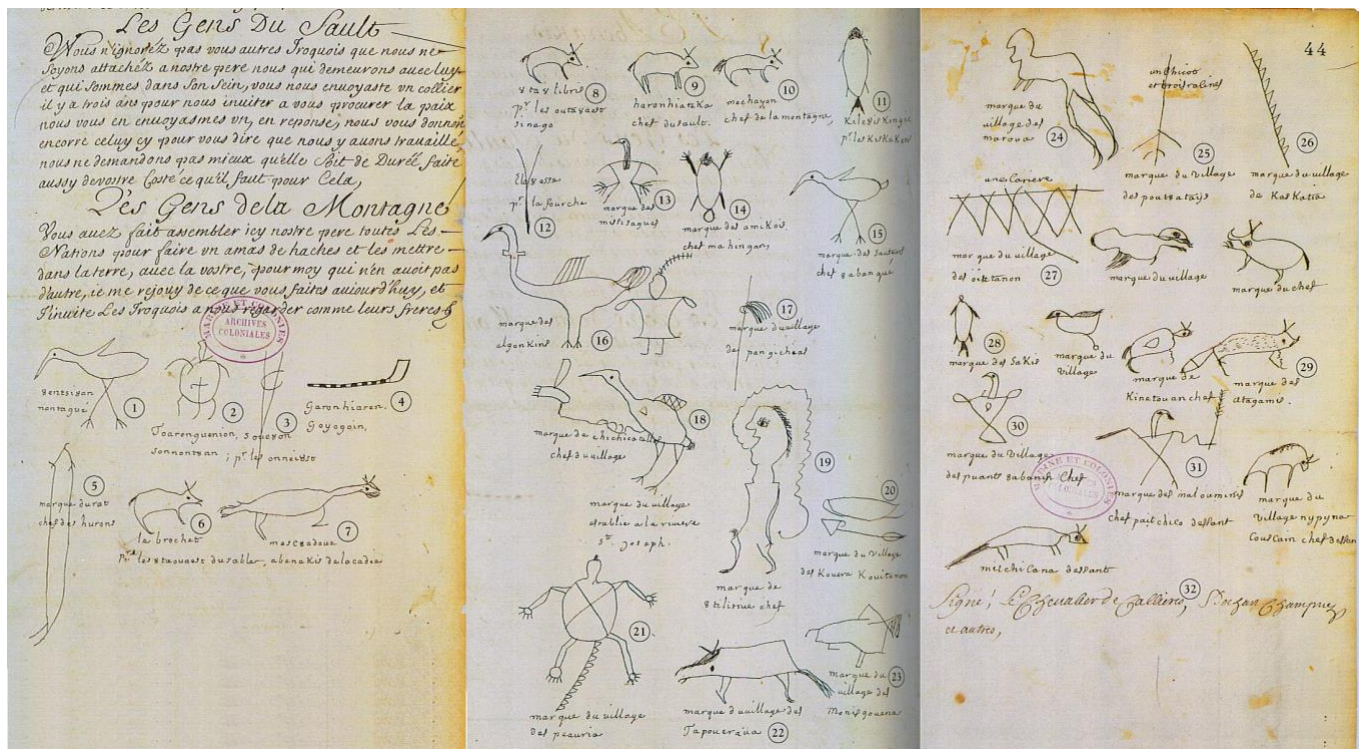 Les Gens Du Sault
Vous n'ignorez pas vous autres Iroquois que nous ne
soyons attachez a nostre pere nous qui demeurons avec luy
et qui sommes dans son sein, vous nous envoyaste vn collier
il y a trois ans pour nous inuiter a vous procurer la paix
nous vous en envoyasmes vn, en reponse, nous vous donnons
encorre celuy cy pour vous dire que nous y auons trauaillé,
nous ne demandons pas mieux qu'elle soit de Durée, faite
aussy de vostre Costé ce qu'il faut pour Cela,
Les Gens de la Montagne
Vous auez fait assembler icy nostre pere toutes Les
Nations pour faire vn amas de haches et les mettre
dans la terre, auec la vostre, pour moy qui n'en auoit pas
d'autre, ie me rejouy de ce que vous faites aujourd'huy, et
J'inuite Les Iroquois a nous regarder comme leurs freres
MARINE ET COLONIES
ARCHIVES
COLONIALES
8entsi8an
montagué
1
2
Toarenguenion,
sonnont8an
3
; pr les onnei8st
4
Garonhiaron.
Goyogoin,
5
marque du rat
chef des hurons
6
le brochet
pr les 8taouast du sable,
7
mescadoue
abenakis de lacadie
8
pr les outa8ast
sinago
9
haronhiateka
chef du sault.
10
mechayon
chef de la montagne,
11
Kile8iskingie
pr les Kiskakons
12
Ela8asse
pr la fourche
13
marque des
missisagues
14
marque des amikois,
chef mahingan,
15
marque des sauteurs
chef 8abangué
16
marque des
algonkins
17
marque du uillage
de pangichéas
18
marque de chichicatalo
chef du uillage
marque du uillage
establie a la riuiere
St. Joseph.
19
marque de
8tilirine chef
20
marque du village
des Kouera Kouitanon
21
marque du village
des peauria
22
marque d uuillage des
Tapouer8a
23
marque du
uillage des
Monisgouena
44
24
marque du
village des
maroua
un chicot
et trois ralines
25
marque du village
des poutouatays
26
marque du village
de KasKatia
une Cariere
marque du uillage
des 8iatanon
27
marque du uillage
marque du chef
28
marque des sakis
marque du
village
marque de
Kinetouan chef
29
marque des
atagamis.
30
marque du Village
des puant 8abanis Chef
MARINE ET COLONIES
31
marque des maloumins
chef paitchico dessant
marque du
Village nypyna
Couscam chef dessant
melchicana dessant
32
Signé, Le Chevalier de Callieres, Bochart Champigny
et autres,